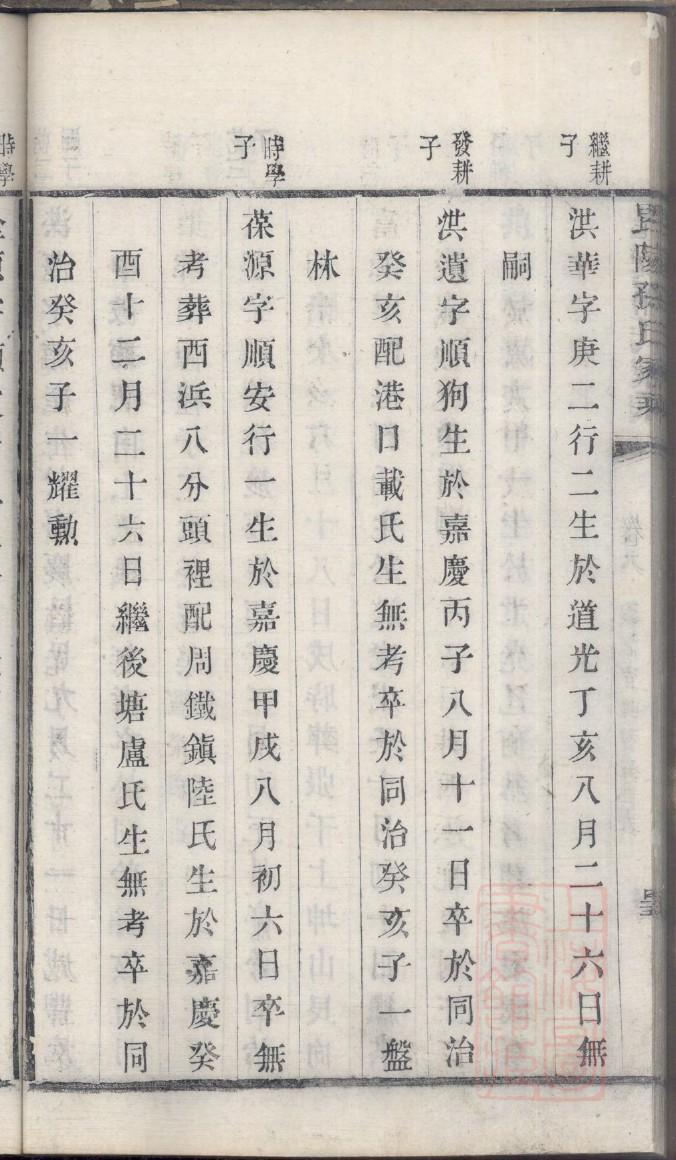 繼耕
子
洪華字庚二行二生於道光丁亥八月二十六日無
嗣
發耕
子
洪遺字順狗生於嘉慶丙子八月十一日卒於同治
癸亥配港口載氏生無考卒於同治癸亥子一盤
林
時學
子
葆源字順安行一生於嘉慶甲戌八月初六日卒無
考葬西浜八分頭裡配周鐵鎮陸氏生於嘉慶癸
酉十二月二十六日繼後塘盧氏生無考卒於同
治癸亥子一耀勳
時學